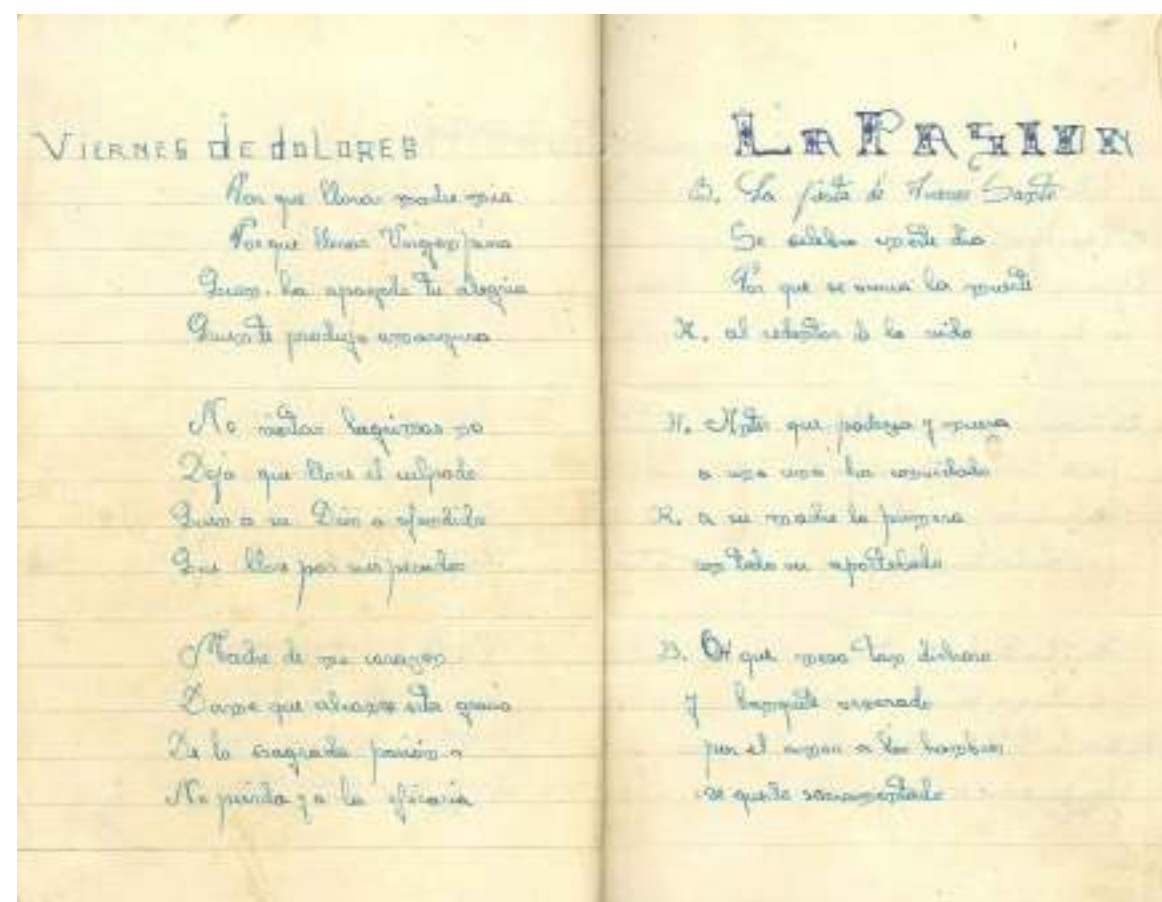 VIERNES de doLORES
Por que lloras madre mia
Porque lloras Virgen pura
Quien ha apagado tu alegria
Quien te produjo amargura
No viertas lagrimas no
Deja que llore el culpado
Quien a su Dios a ofendido
Que llore por sus pecados
Madre de mi corazon
Dame que alcance esta gracia
De la sagrada pasión
No pierda yo la eficacia
LA PASION
La fiesta de Jueves Santo
Se celebra en este dia
Por que se anuncia la muerte
al redentor de la vida
Antes que padezca y muera
a una cena ha convidado
a su madre la primera
con todo su apostolado
Oh que mesa tan dichosa
y banquete
por el amor a los hombres
se quedo sacramentado